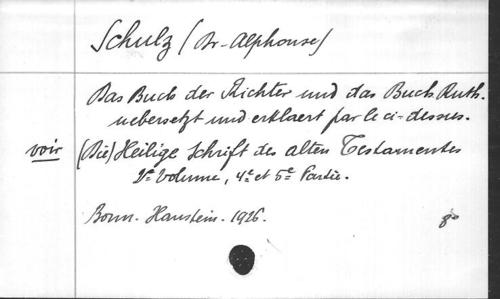 Schulz (Dr. Alphonse)
Das Buch der Richter und das Buch Ruth.
uebersetzt und erklaert par le ci-dessus.
voir (Die) Heilige Schrift des alten Testamentes
2e Volume, 4e et 5e Partie.
Bonn. Hanstein. 1926. 8o